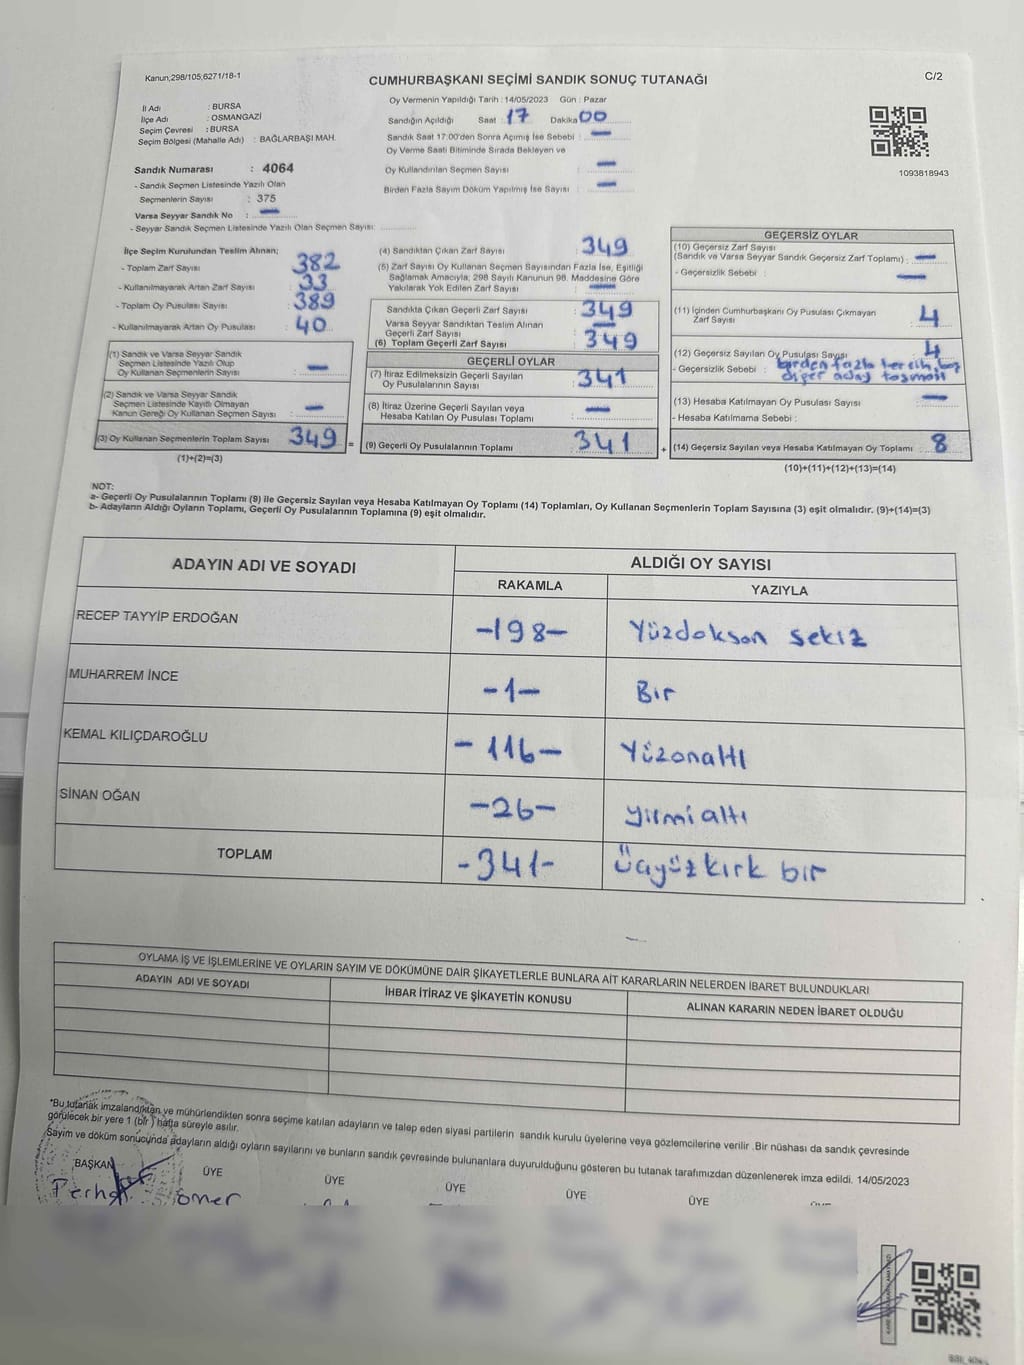 Kanun;298/105;6271/18-1
CUMHURBAŞKANI SEÇİMİ SANDIK SONUÇ TUTANAĞI
C/2
İl Adı : BURSA
İlçe Adı : OSMANGAZİ
Seçim Çevresi : BURSA
Seçim Bölgesi (Mahalle Adı) : BAĞLARBAŞI MAH.
Sandık Numarası : 4064
- Sandık Seçmen Listesinde Yazılı Olan
Seçmenlerin Sayısı : 375
Varsa Seyyar Sandık No : —
- Seyyar Sandık Seçmen Listesinde Yazılı Olan Seçmen Sayısı:
Oy Vermenin Yapıldığı Tarih : 14/05/2023 Gün : Pazar
Sandığın Açıldığı Saat : 17 Dakika 00
Sandık Saat 17:00'den Sonra Açımış İse Sebebi : —
Oy Verme Saati Bitiminde Sırada Bekleyen ve
Oy Kullandırılan Seçmen Sayısı : —
Birden Fazla Sayım Döküm Yapılmış İse Sayısı : —
1093818943
İlçe Seçim Kurulundan Teslim Alınan;
- Toplam Zarf Sayısı : 382
- Kullanılmayarak Artan Zarf Sayısı : 33
- Toplam Oy Pusulası Sayısı : 389
- Kullanılmayarak Artan Oy Pusulası : 40
(1) Sandık ve Varsa Seyyar Sandık
Seçmen Listesinde Yazılı Olup
Oy Kullanan Seçmenlerin Sayısı : —
(2) Sandık ve Varsa Seyyar Sandık
Seçmen Listesinde Kayıtlı Olmayan
Kanun Gereği Oy Kullanan Seçmen Sayısı : —
(3) Oy Kullanan Seçmenlerin Toplam Sayısı : 349 =
(1)+(2)=(3)
(4) Sandıktan Çıkan Zarf Sayısı : 349
(5) Zarf Sayısı Oy Kullanan Seçmen Sayısından Fazla İse, Eşitliği
Sağlamak Amacıyla; 298 Sayılı Kanunun 98. Maddesine Göre
Yakılarak Yok Edilen Zarf Sayısı : —
Sandıkta Çıkan Geçerli Zarf Sayısı : 349
Varsa Seyyar Sandıktan Teslim Alınan
Geçerli Zarf Sayısı : —
(6) Toplam Geçerli Zarf Sayısı : 349
GEÇERLİ OYLAR
(7) İtiraz Edilmeksizin Geçerli Sayılan
Oy Pusulalarının Sayısı : 341
(8) İtiraz Üzerine Geçerli Sayılan veya
Hesaba Katılan Oy Pusulası Toplamı : —
(9) Geçerli Oy Pusulalarının Toplamı : 341 +
GEÇERSİZ OYLAR
(10) Geçersiz Zarf Sayısı
(Sandık ve Varsa Seyyar Sandık Geçersiz Zarf Toplamı) : —
- Geçersizlik Sebebi : —
(11) İçinden Cumhurbaşkanı Oy Pusulası Çıkmayan
Zarf Sayısı : 4
(12) Geçersiz Sayılan Oy Pusulası Sayısı : 4
- Geçersizlik Sebebi : birden fazla tercih, boş
diğer aday taşması
(13) Hesaba Katılmayan Oy Pusulası Sayısı : —
- Hesaba Katılmama Sebebi :
(14) Geçersiz Sayılan veya Hesaba Katılmayan Oy Toplamı : 8
(10)+(11)+(12)+(13)=(14)
NOT:
a- Geçerli Oy Pusulalarının Toplamı (9) ile Geçersiz Sayılan veya Hesaba Katılmayan Oy Toplamı (14) Toplamları, Oy Kullanan Seçmenlerin Toplam Sayısına (3) eşit olmalıdır. (9)+(14)=(3)
b- Adayların Aldığı Oyların Toplamı, Geçerli Oy Pusulalarının Toplamına (9) eşit olmalıdır.
ADAYIN ADI VE SOYADI
ALDIĞI OY SAYISI
RAKAMLA YAZIYLA
RECEP TAYYİP ERDOĞAN -198- Yüzdoksan sekiz
MUHARREM İNCE -1- Bir
KEMAL KILIÇDAROĞLU -116- Yüzonaltı
SİNAN OĞAN -26- yirmialtı
TOPLAM -341- Üçyüzkırk bir
OYLAMA İŞ VE İŞLEMLERİNE VE OYLARIN SAYIM VE DÖKÜMÜNE DAİR ŞİKAYETLERLE BUNLARA AİT KARARLARIN NELERDEN İBARET BULUNDUKLARI
ADAYIN ADI VE SOYADI İHBAR İTİRAZ VE ŞİKAYETİN KONUSU ALINAN KARARIN NEDEN İBARET OLDUĞU
*Bu tutanak imzalandıktan ve mühürlendikten sonra seçime katılan adayların ve talep eden siyasi partilerin sandık kurulu üyelerine veya gözlemcilerine verilir .Bir nüshası da sandık çevresinde
görülecek bir yere 1 (bir ) hafta süreyle asılır.
Sayım ve döküm sonucunda adayların aldığı oyların sayılarını ve bunların sandık çevresinde bulunanlara duyurulduğunu gösteren bu tutanak tarafımızdan düzenlenerek imza edildi. 14/05/2023
BAŞKAN ÜYE ÜYE ÜYE ÜYE ÜYE
ömer